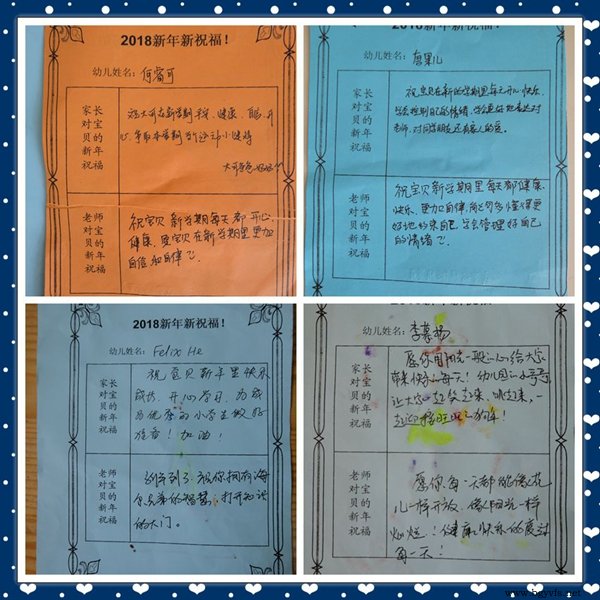 2018新年新祝福!
幼儿姓名:何睿可
家长
对宝
贝的
新年
祝福
心
老师
对宝
贝的
新年
祝福
祝宝贝新学期每天都开心
健康,愿宝贝在新学期里更加
自信和自律
2018新年新祝福!
幼儿姓名:唐果儿
家长
对宝
贝的
新年
祝福
祝宝贝在新的学期里每天开心快乐,
学会控制自己的情绪,
老师,对同学朋友还有家人的爱。
老师
对宝
贝的
新年
祝福
祝宝贝新学期里每天都健康
快乐,更加自律,
好地约束自己,学会管理好自己
的情绪
2018新年新祝福!
幼儿姓名:Felix He
家长
对宝
贝的
新年
祝福
祝宝贝新年里快乐
成长,开心学习,为成
为优秀的小学生做好
准备!加油!
老师
对宝
贝的
新年
祝福
新年到了祝你拥有海
的智慧,打开知识
的大门。
2018新年新祝福
幼儿姓名:李慕扬
家长
对宝
贝的
新年
祝福
愿你用阳光一般的心给大家
带来快乐的每天!幼儿园
让大家一起
一起迎接
老师
对宝
贝的
新年
祝福
愿你每一天都能像花
儿一样开放,像阳光一样
灿烂!健康、快乐的度过
每一天!
www.bgyvfs.net